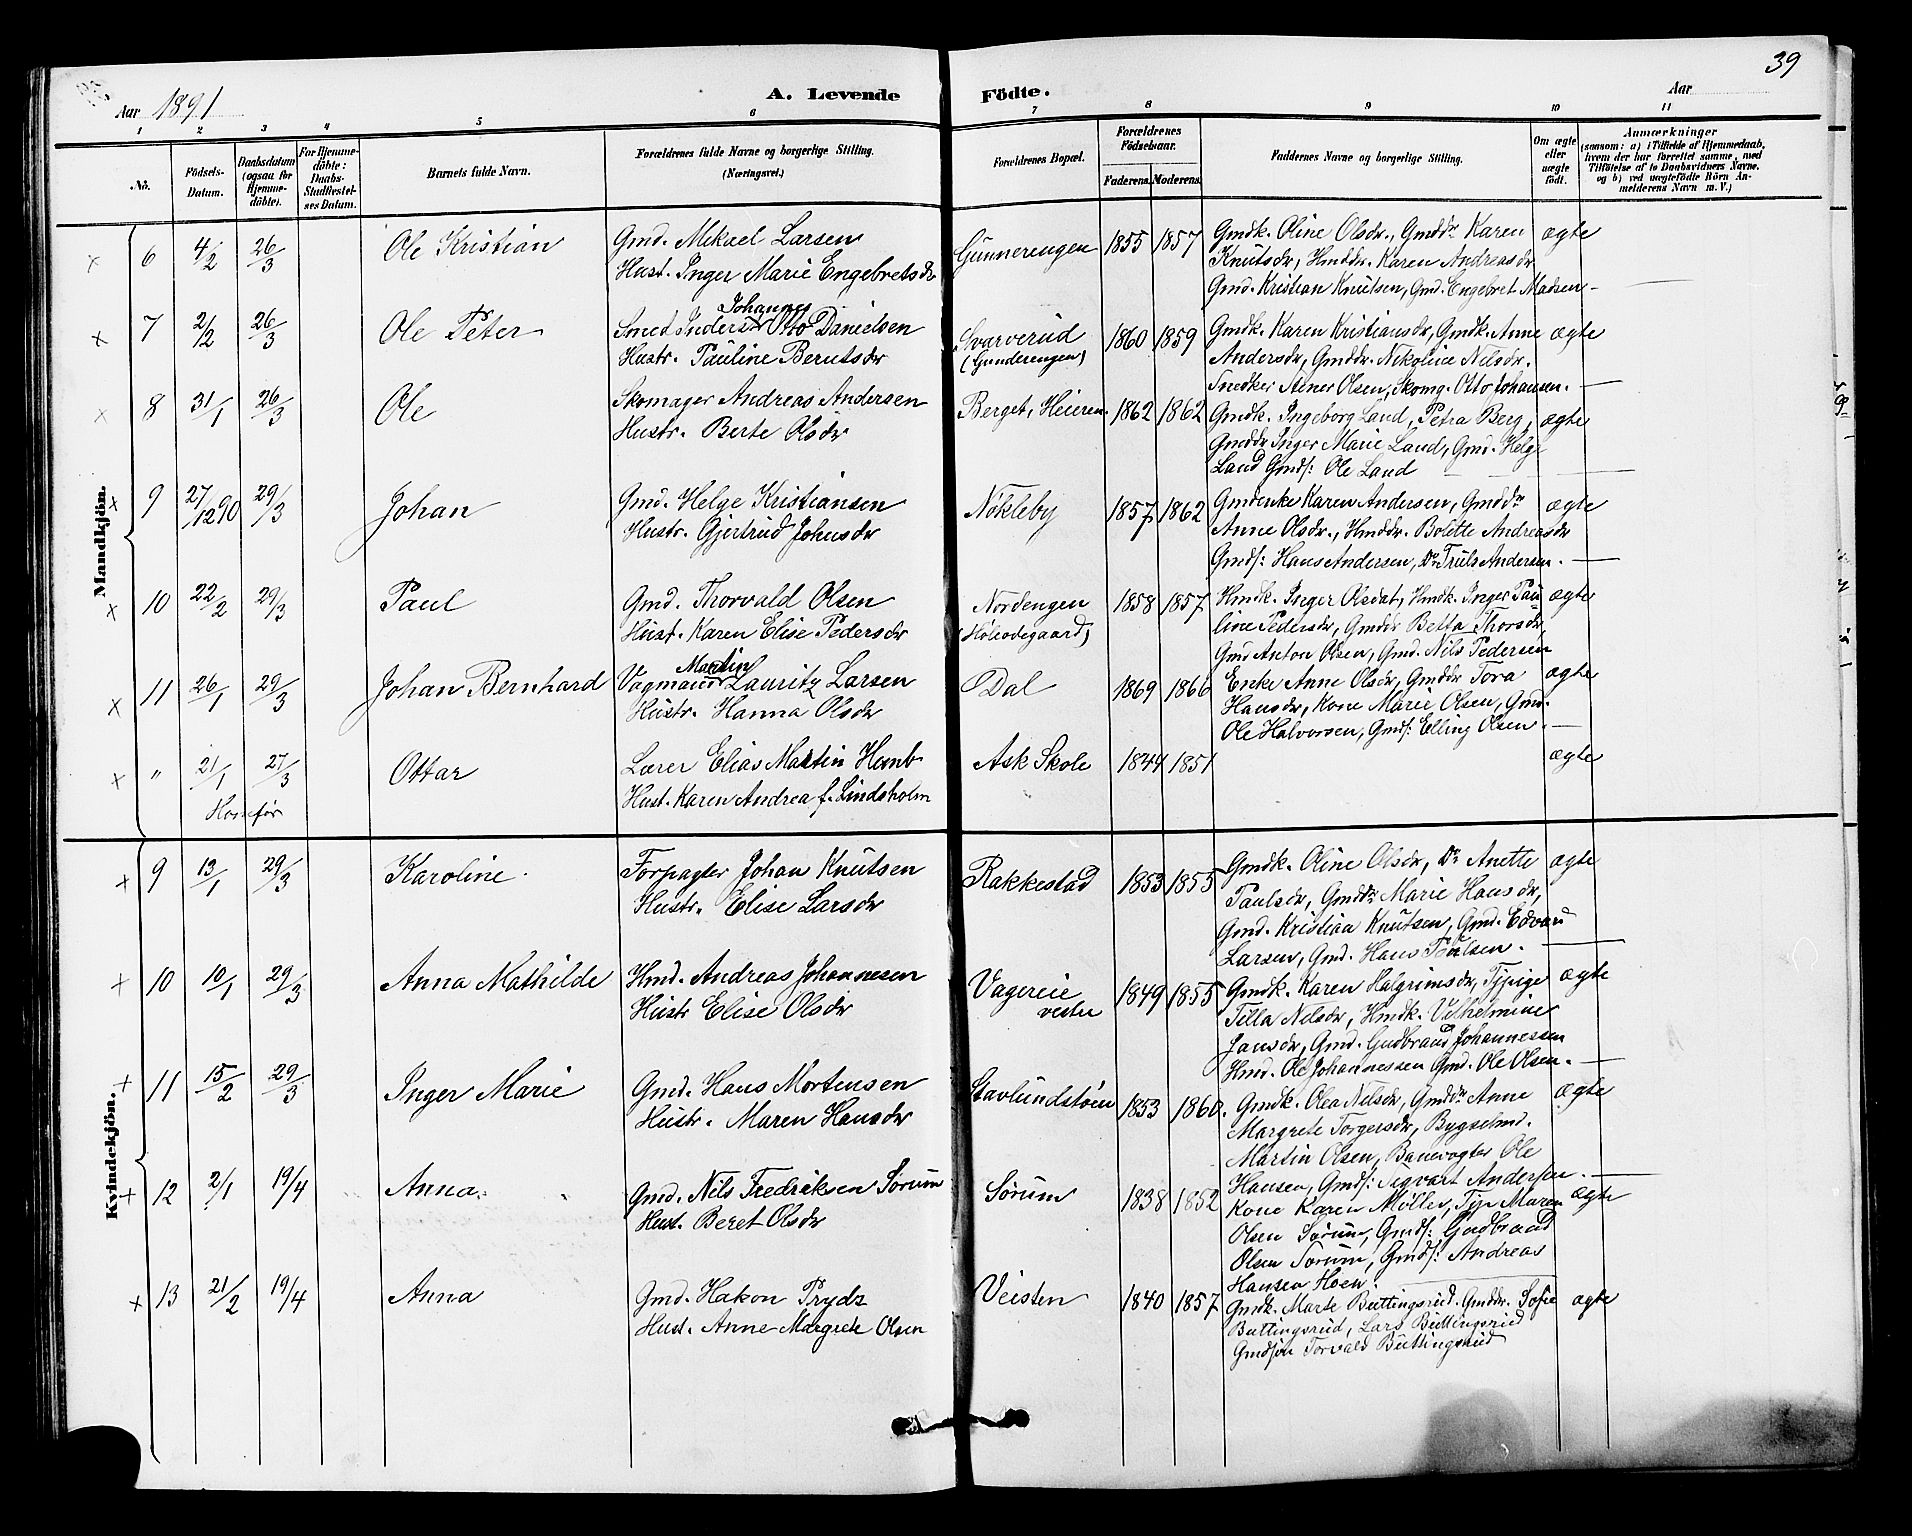 39
Aar 1891
A. Levende Födte.
Aar
1 2 3 4 5 6 7 8 9 10 11
No.
Födsels-Datum.
Daabsdatum (ogsaa for Hjemme-döbte).
For Hjemme-döbte: Daabs-Stadfæstel-ses Datum.
Barnets fulde Navn.
Forældrenes fulde Navne og borgerlige Stilling. (Næringsvei.)
Forældrenes Bopæl.
Forældrenes Födselsaar.
Faderens. Moderens.
Faddernes Navne og borgerlige Stilling.
Om ægte eller uægte födt.
Anmærkninger
(saasom: a) i Tilfælde af Hjemmedaab, hvem der har forrettet samme, med Tilföielse af to Daabsvidners Navne, og b) ved uægtefödte Börn An-melderens Navn m. V.)
Mandkjön.
6 4/2 26/3 Ole Kristian Gmd. Mikael Larsen Gunnerengen 1855 1857 Gmdk. Oline Olsdr., Gmddr. Karen ægte
Hust. Inger Marie Engebretsdr Knutsdr, Hmddr. Karen Andreasdr
Gmd. Kristian Knutsen, Gmd. Engebret Madsen
Johannes
7 2/2 26/3 Ole Peter Smed Otto Danielsen Svarverud 1860 1859 Gmdk. Karen Kristiansdr, Gmdk. Anne ægte
Hustr. Pauline Berntsdr (Gunderengen) Andersdr, Gmddr. Nikoline Nilsdr.
Snedker Abner Olsen, Skomg. Otto Johansen.
8 31/1 26/3 Ole Skomager Andreas Andersen Berget, Heieren 1862 1862 Gmdk. Ingeborg Land, Petra Berg, ægte
Hustr. Berte Olsdr Gmddr Inger Marie Land, Gmd. Helge
Land Gmds: Ole Land
9 27/12 90 29/3 Johan Gmd. Helge Kristiansen Nökleby 1857 1862 Gmdenke Karen Andersen, Gmddr ægte
Hustr. Gjertrud Johnsdr Anne Olsdr., Hmddr. Bolette Andreasdr
Gmds: Hans Andersen, Do. Truls Andersen.
10 22/2 29/3 Paul Gmd. Thorvald Olsen Nordengen 1858 1857 Hmdk. Inger Olsdat, Hmdk. Inger Pau ægte
Hust. Karen Elise Pedersdr line Pedersdr, Gmddr Betta Thorsdr,
Gmd Anton Olsen, Gmd. Nils Pedersen
Martin
11 26/1 29/3 Johan Bernhard Vogmand Lauritz Larsen Dal 1869 1866 Enke Anne Olsdr, Gmddr Tora ægte
Hustr. Hanna Olsdr Hansdr, Kone Marie Olsen, Gmd.
Ole Halvorsen, Gmds: Elling Olsen.
" 21/1 27/3 Ottar Lærer Elias Martin Homb Ask Skole 1844 1851 ægte
Hust. Karen Andrea f. Lindsholm
Kvindekjön.
9 13/1 29/3 Karoline Forpagter Johan Knutsen Rakkestad 1853 1855 Gmdk. Oline Olsdr, Do Anette ægte
Hustr. Elise Larsdr Paulsdr, Gmddr Marie Hansdr,
Gmd. Kristian Knutsen, Gmd. Edvard
Larsen, Gmd. Hans Paulsen.
10 10/1 29/3 Anna Mathilde Hmd. Andreas Johannesen Vagereie 1849 1855 Gmdk. Karen Halgrimsdr, Tjpige ægte
Hustr Elise Olsdr vestre Tilla Nilsdr, Hmdk. Vilhelmine
Jansdr, Gmd. Gudbrand Johannessen
Hmd. Ole Johannessen Gmd. Ole Olsen.
11 15/2 29/3 Inger Marie Gmd. Hans Mortensen Stavlundstøen 1853 1860. Gmdk. Olea Nilsdr, Gmddr Anne Ægte
Hustr. Maren Hansdr Margrete Torgersdr, Bygselmd.
Martin Olsen, Banevogter Ole
Hansen, Gmds: Sigvart Andersen.
12 2/1 19/4 Anna Gmd. Nils Fredriksen Sørum Sørum 1838 1852 Kone Karen Møller, Tjp Maren ægte
Hust. Beret Olsdr Olsen Sørum, Gmds: Gudbrand
Olsen Sørum, Gmds: Andreas
Hansen Hoen.
13 21/2 19/4 Anna Gmd. Hakon Prydz Veisten 1840 1857 Gmdk. Marte Buttingsrud. Gmddr. Sofie ægte
Hust. Anne Margrete Olsen Buttingsrud, Lars Buttingsrud
Gmdsøn Torvald Buttingsrud